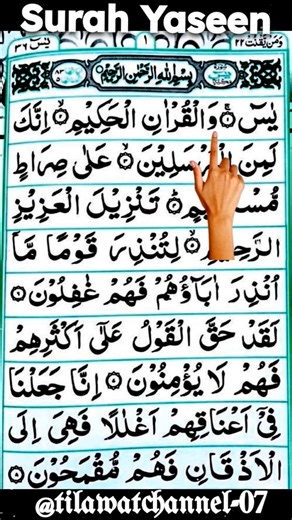 Surah Yaseen
وَمَن يَّقْنُتْ ٢٢ ١ يٰسٓ ٣٦
بِسْمِ اللهِ الرَّحْمٰنِ الرَّحِيْمِ
يٰسٓ ۝ وَالْقُرْاٰنِ الْحَكِيْمِ ۝ اِنَّكَ
لَمِنَ الْمُرْسَلِيْنَ ۝ عَلٰى صِرَاطٍ
مُّسْتَقِيْمٍ ۝ تَنْزِيْلَ الْعَزِيْزِ
الرَّحِيْمِ ۝ لِتُنْذِرَ قَوْمًا مَّاۤ
اُنْذِرَ اٰبَآؤُهُمْ فَهُمْ غٰفِلُوْنَ ۝
لَقَدْ حَقَّ الْقَوْلُ عَلٰٓى اَكْثَرِهِمْ
فَهُمْ لَا يُؤْمِنُوْنَ ۝ اِنَّا جَعَلْنَا
فِيْٓ اَعْنَاقِهِمْ اَغْلٰلًا فَهِيَ اِلَى
الْاَذْقَانِ فَهُمْ مُّقْمَحُوْنَ ۝
@tilawatchannel-07